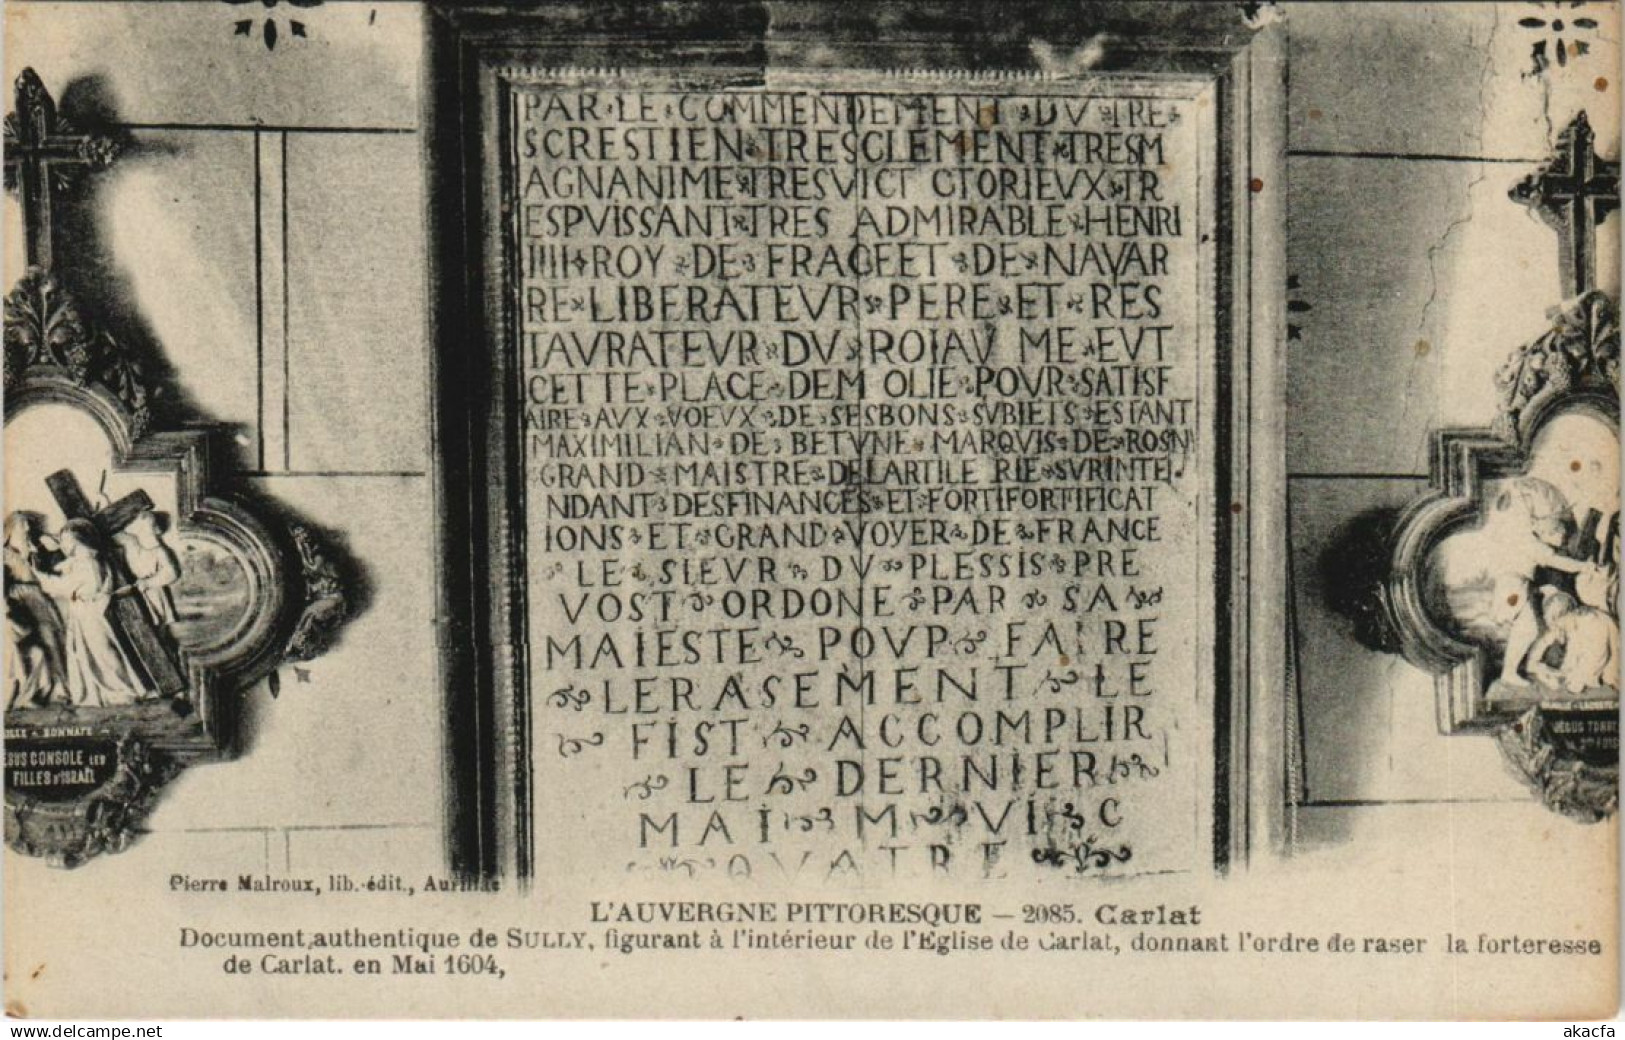 PAR · LE · COMMENDEMENT · DV · TRE ·
SCRESTIEN · TRESCLEMENT · TRESM
AGNANIME · TRESVICT CTORIEVX · TR
ESPVISSANT · TRES ADMIRABLE · HENRI
IIII · ROY · DE · FRACEET · DE · NAVAR
RE · LIBERATEVR · PERE · ET · RES
TAVRATEVR · DV · ROIAV ME · EVT
CETTE · PLACE · DEM OLIE · POVR · SATISF
AIRE · AVX · VOEVX · DE · SESBONS · SVBIETS · ESTANT
MAXIMILIAN · DE · BETVNE · MARQVIS · DE · ROSNI
GRAND · MAISTRE · DELARTILE RIE · SVRINTE ·
NDANT · DESFINANCES · ET · FORTIFORTIFICAT
IONS · ET · GRAND · VOYER · DE · FRANCE
· LE · SIEVR · DV · PLESSIS · PRE
VOST · ORDONE · PAR · SA ·
MAIESTE · POVR · FAIRE
· LERASEMENT · LE
· FIST · ACCOMPLIR
· LE · DERNIER ·
MAI · M · VI · C
· QVATRE ·
ESUS CONSOLE LES
FILLES D'ISRAËL
JESUS TOMBE
Pierre Malroux, lib.-édit., Aurillac
L'AUVERGNE PITTORESQUE — 2085. Carlat
Document authentique de SULLY, figurant à l'intérieur de l'Eglise de Carlat, donnant l'ordre de raser la forteresse
de Carlat. en Mai 1604,
www.delcampe.net
akacfa